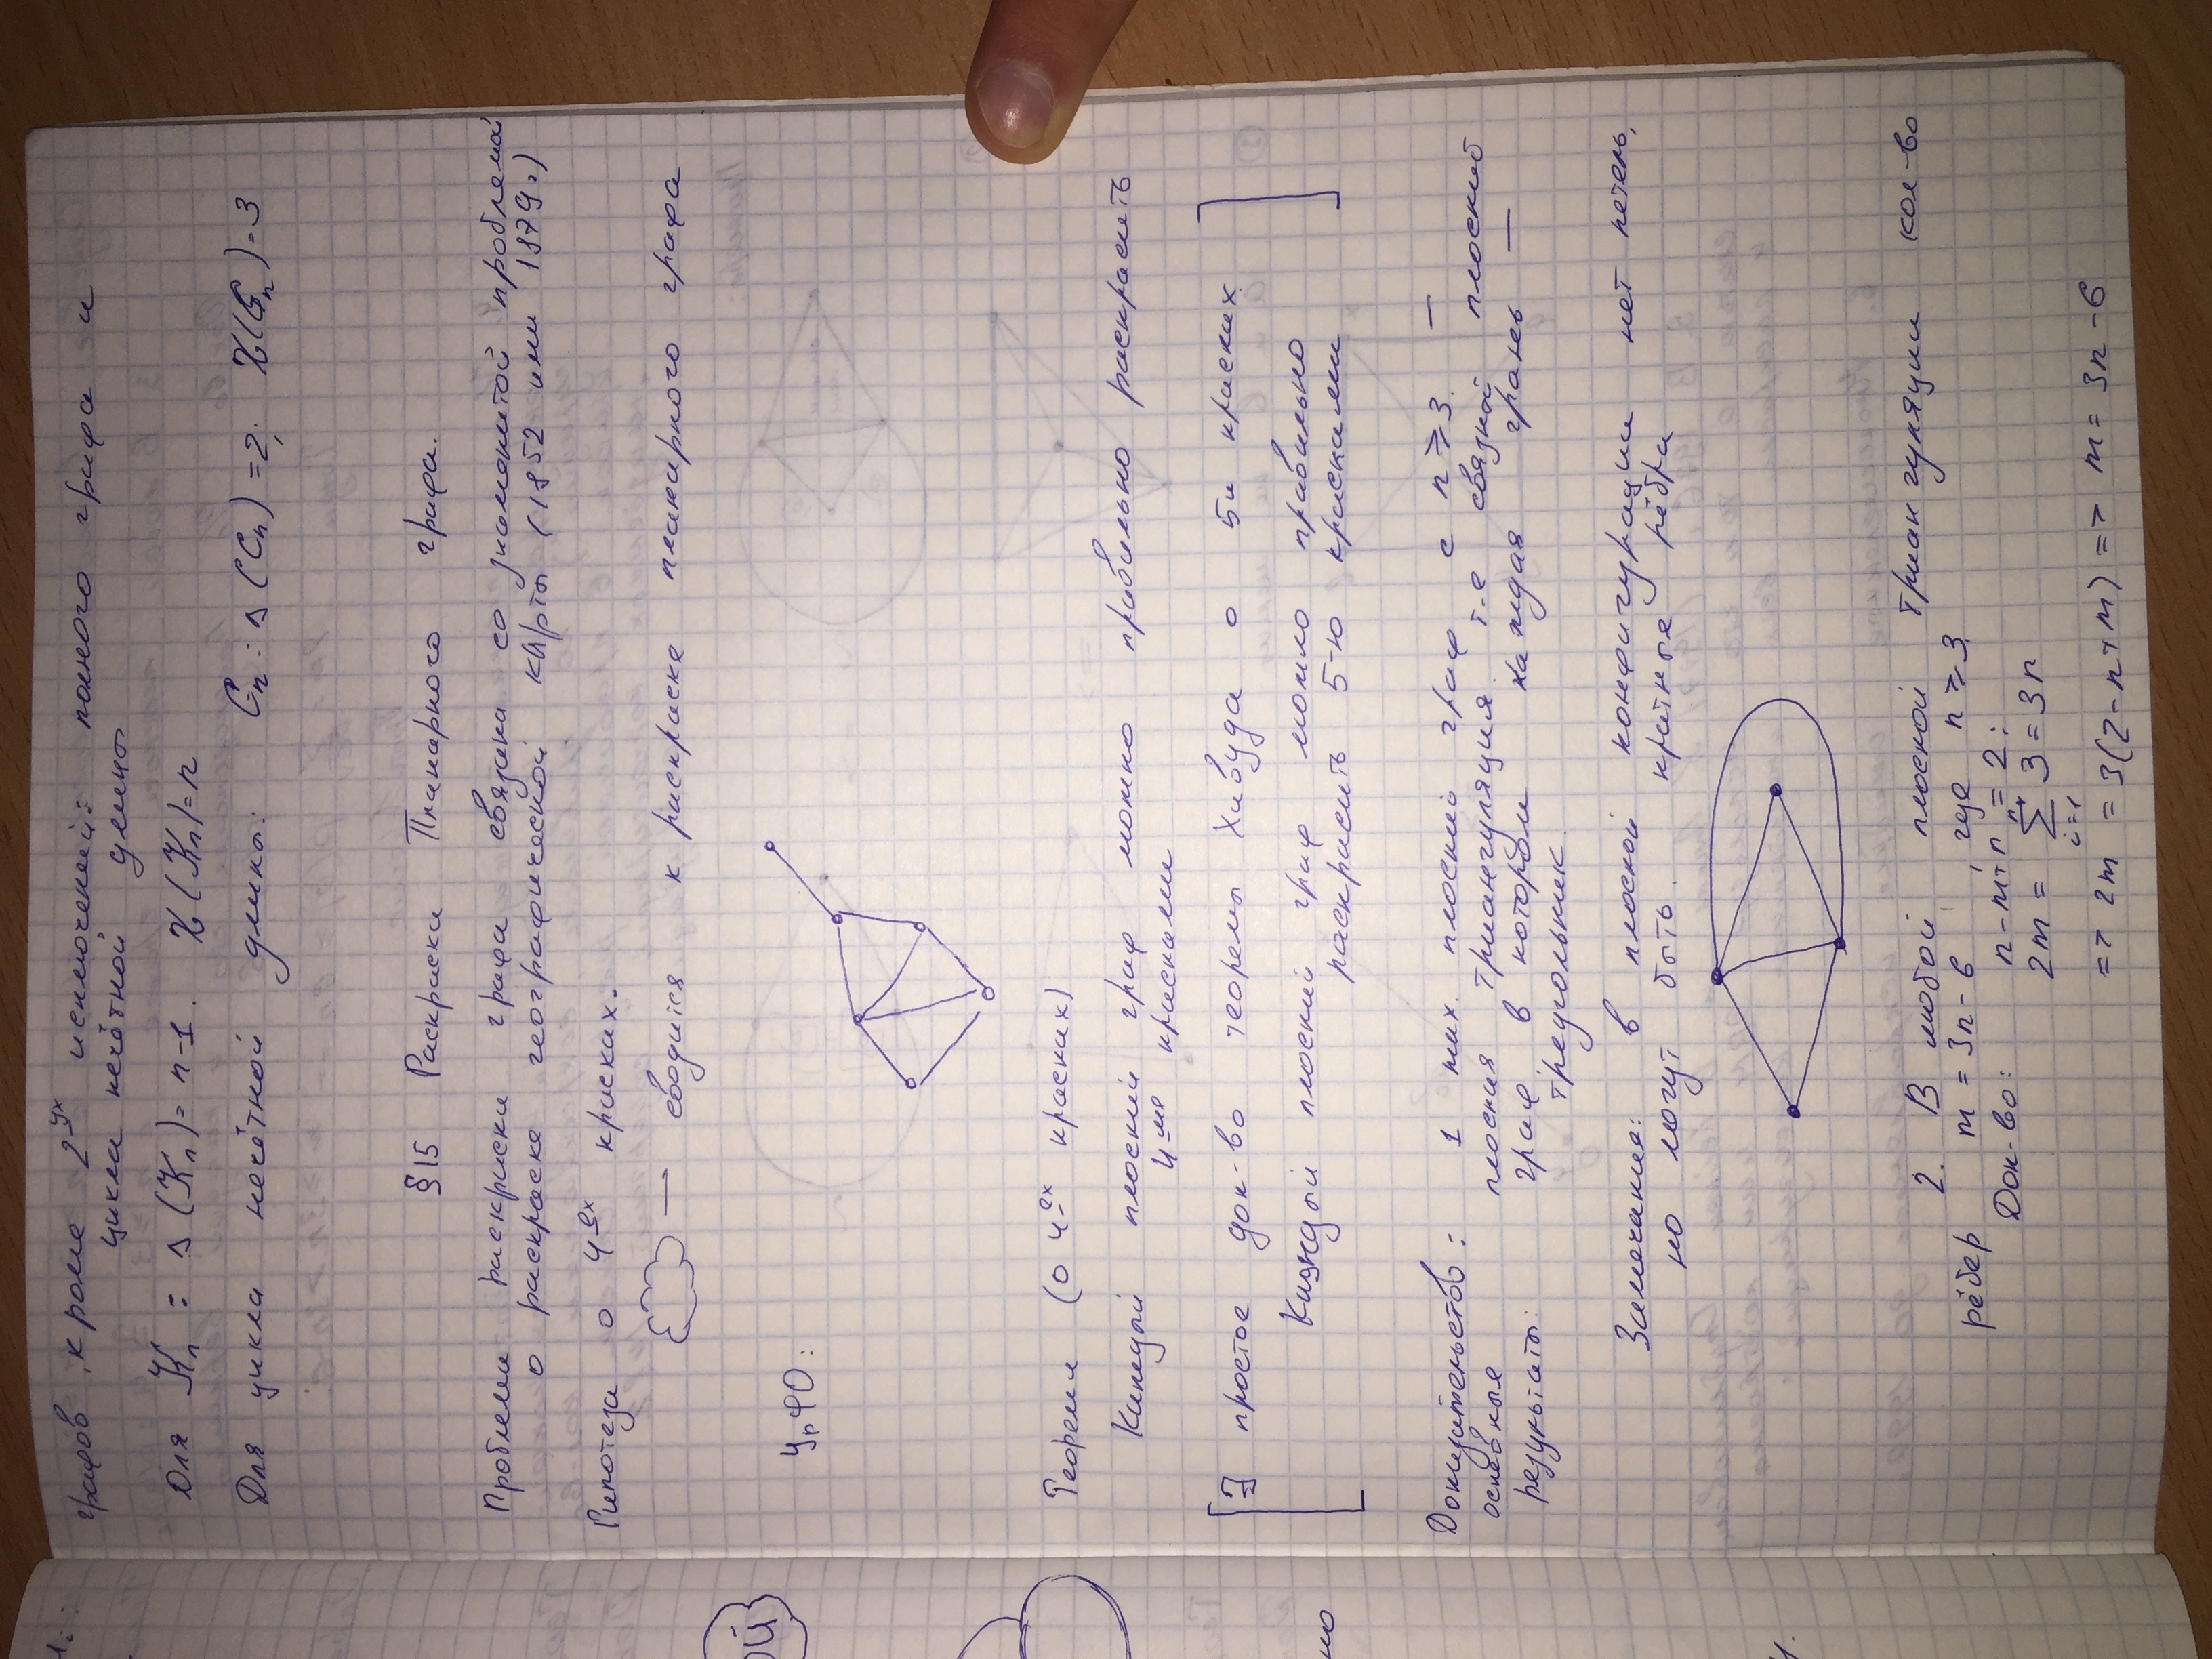 графов, кроме 2ух исключений: полного графа и
цикла нечётной длины
Для Kₙ : Δ(Kₙ)= n-1. χ(Kₙ)=n
Для цикла нечётной длины: Cₙ : Δ(Cₙ)=2; χ(Cₙ)=3
§15 Раскраски Планарного графа.
Проблема раскраски графа связана со знаменитой проблемой
о раскраске географической карты (1852 или 1879г)
Гипотеза о 4ех красках.
→ сводится к раскраске планарного графа
УрФО:
Теорема (о 4ех красках)
Каждый плоский граф можно правильно раскрасить
4мя красками
[∃ простое док-во теоремы Хивуда о 5и красках.
Каждый плоский граф можно правильно
раскрасить 5-ю красками]
Доказательство: 1 max. плоский граф с n ≥ 3. —
основные плоская триангуляция. т.е связной плоский
результаты: граф, в котором каждая грань —
треугольник.
Замечание: в плоской конфигурации нет петель,
но могут быть. кратные рёбра
2. В любой плоской триангуляции кол-во
рёбер m = 3n-6, где n ≥ 3.
Док-во: n-m+r = 2;
2m = ∑ᵢ₌₁ʳ 3 = 3r
=> 2m = 3(2-n+m) => m = 3n-6
ой
но